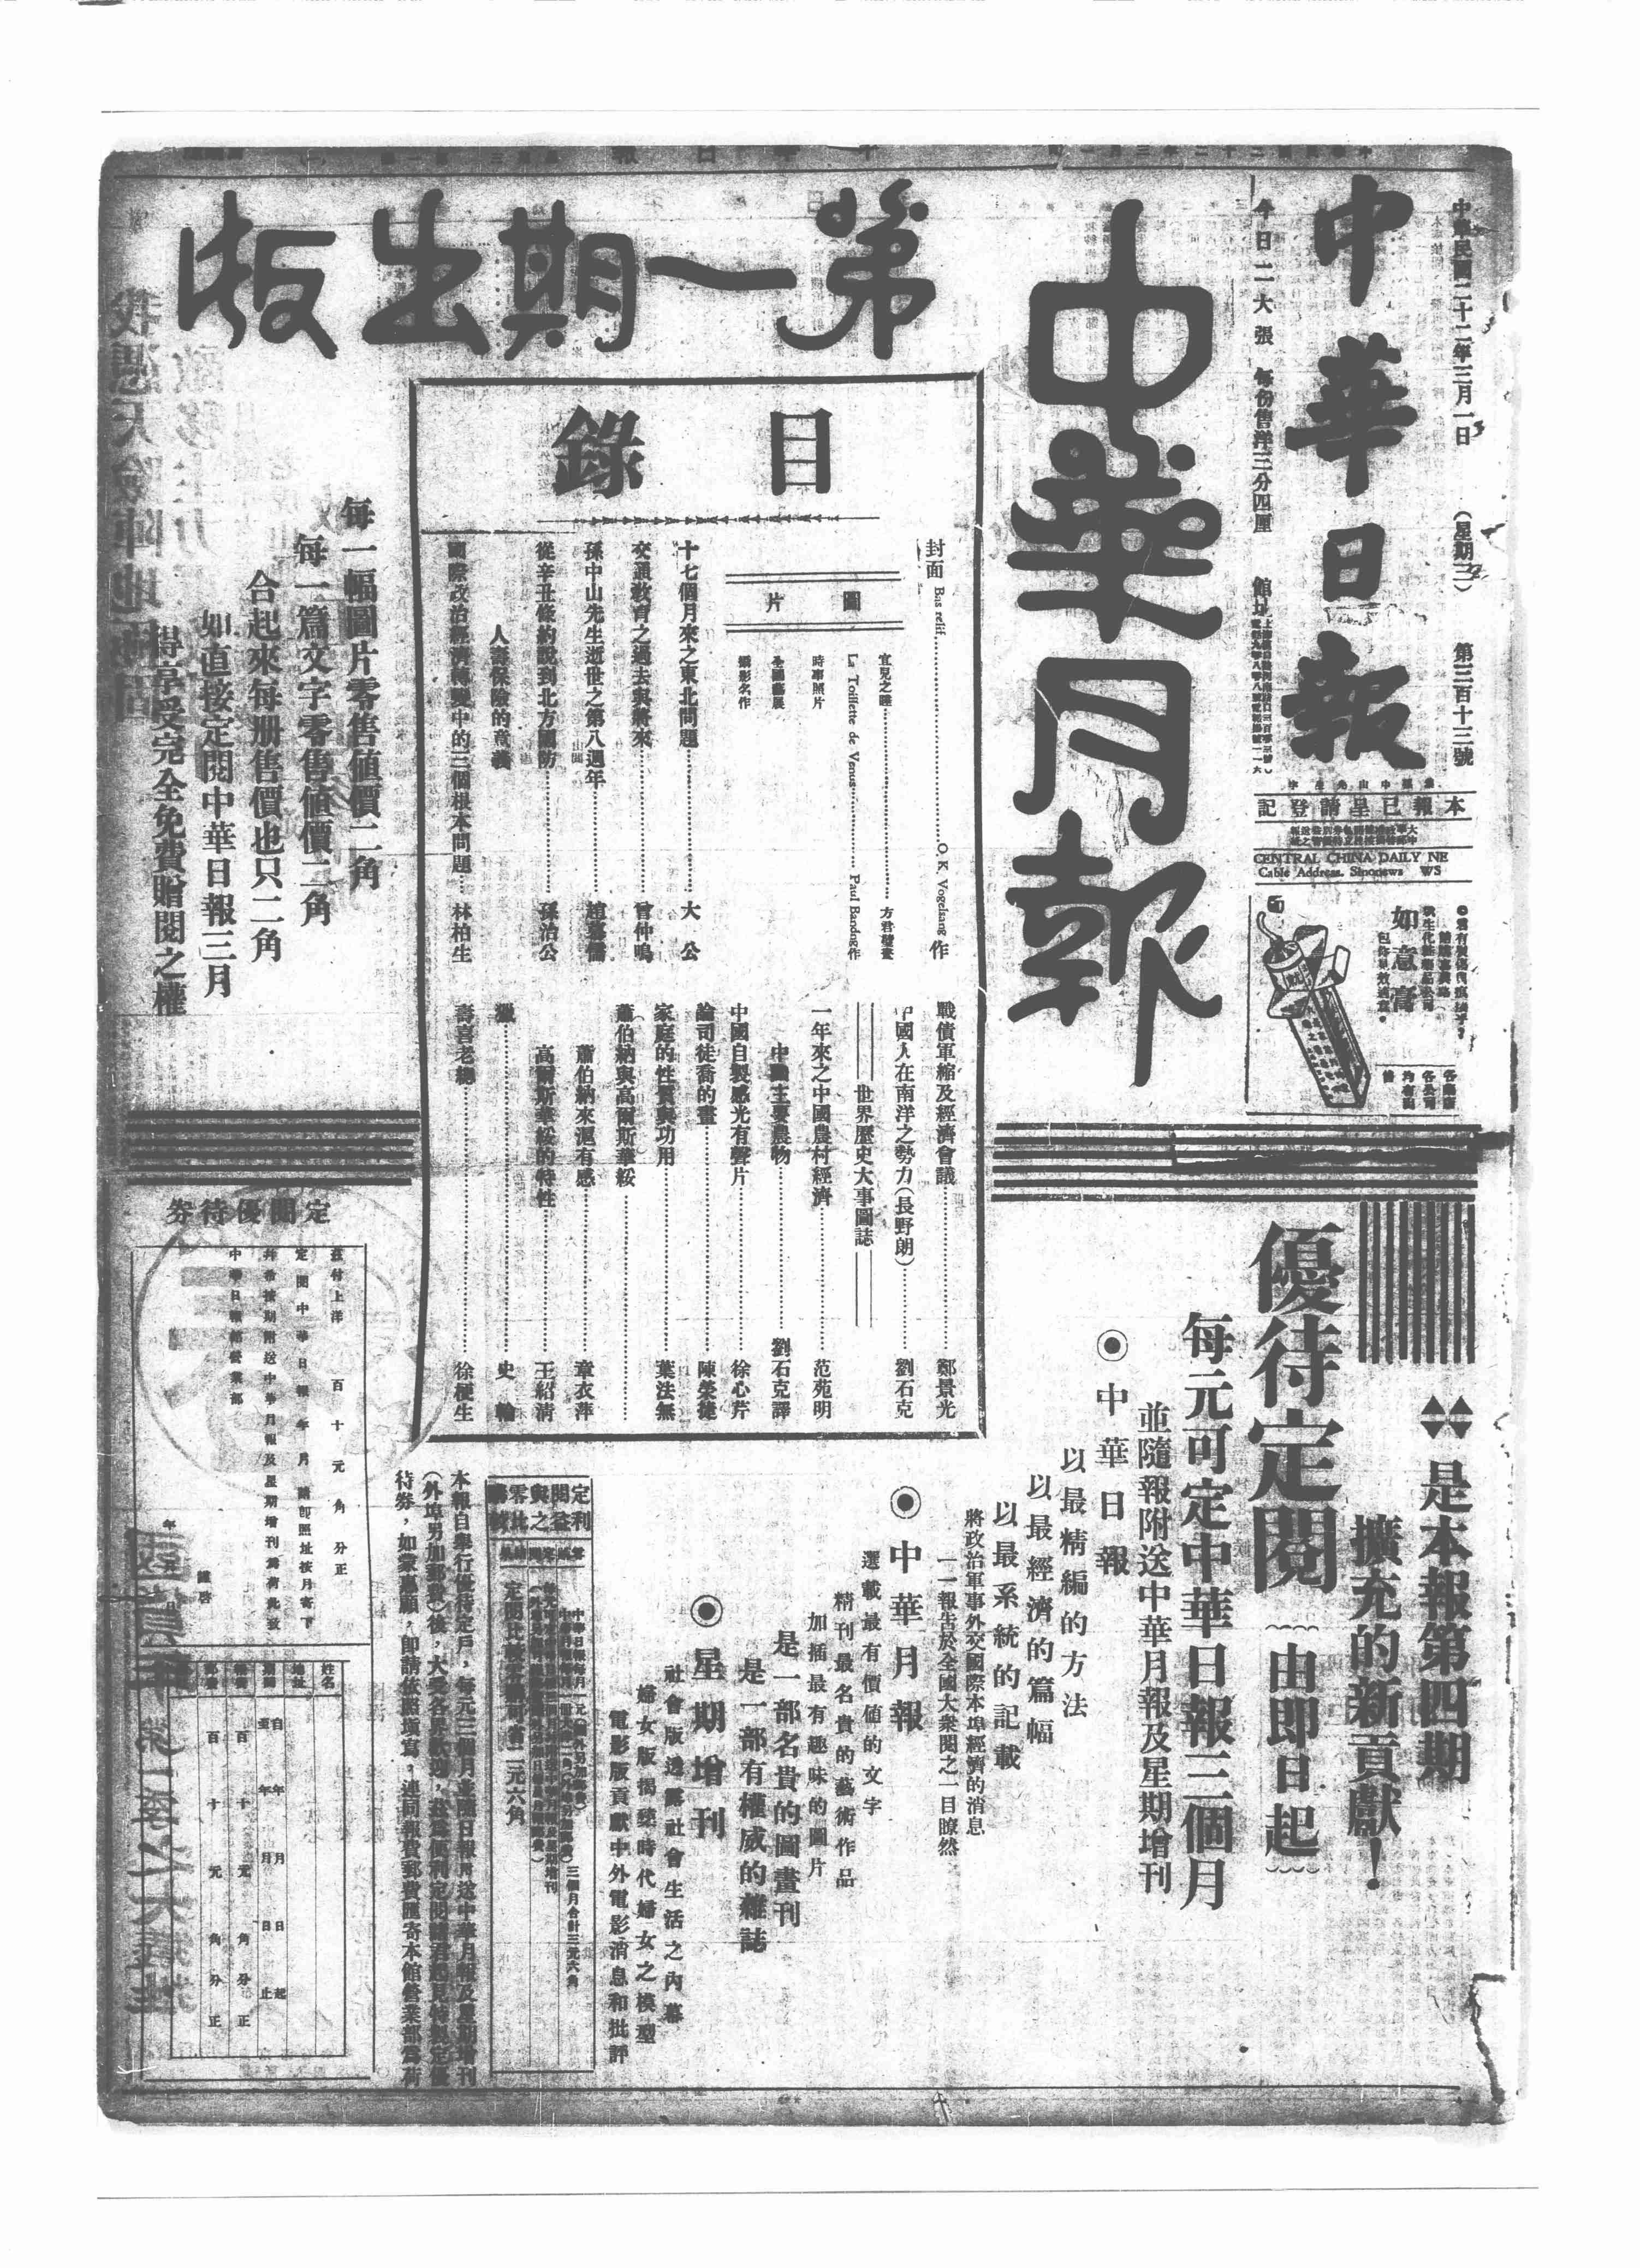 中華民國二十二年三月一日
（星期三）
第三百十三號
中華日報
今日二大張
每份售洋三分四厘
本報已呈請登記
CENTRAL CHINA DAILY NEWS
Cable Address. Sinonews
如意膏
中華月報
第一期出版
目錄
封面 Bas relif O. K. Vogelsang 作
圖片
宜兒之睡 方君璧畫
La Toillette de Venus
時事照片
全國藝展
攝影名作
十七個月來之東北問題 大公
交通教育之過去與將來 曾仲鳴
孫中山先生逝世之第八週年
從辛丑條約說到北方國防 孫治公
人壽保險的意義
國際政治經濟轉變中的三個根本問題 林柏生
戰債軍縮及經濟會議 鄭景光
中國人在南洋之勢力（長野朗） 劉石克
世界歷史大事圖誌
一年來之中國農村經濟 范苑明
中國主要農物 劉石克譯
中國自製感光有聲片 徐心芹
論司徒喬的畫 陳榮捷
家庭的性質與功用 葉法無
蕭伯納與高爾斯華綏
蕭伯納來滬有感 章衣萍
高爾斯華綏的特性 王紹清
獵 史輪
壽喜老總 徐梗生
每一幅圖片零售值價二角
每一篇文字零售值價二角
合起來每册售價也只二角
如直接定閱中華日報三月
得享受完全免費贈閱之權
是本報第四期
擴充的新貢獻！
優待定閱
由即日起
每元可定中華日報三個月
並隨報附送中華月報及星期增刊
◉中華日報
以最精編的方法
以最經濟的篇幅
以最系統的記載
將政治軍事外交國際本埠經濟的消息
一一報告於全國大衆閱之一目瞭然
◉中華月報
選載最有價值的文字
精刊最名貴的藝術作品
加插最有趣味的圖片
是一部名貴的圖畫刊
是一部有權威的雜誌
◉星期增刊
社會版透露社會生活之內幕
婦女版揭櫫時代婦女之模型
電影版貢獻中外電影消息和批評
三個月合計三元六角
本報自舉行優待定戶，每元三個月並隨日報附送中華月報及星期增刊
（外埠另加郵費）後，大受各界歡迎，茲爲便利定閱諸君起見特製定優
待劵，如蒙惠顧，即請依照填寫，連同報費郵費匯寄本館營業部爲荷
定閱優待劵
茲付上洋 百 十 元 角 分正
定閱中華日報 年 月 請即照址按月寄下
并希按期附送中華月報及星期增刊爲荷此致
中華日報館營業部
年 月 日
謹啓
姓名
地址
自 年 月 日 起
至 年 月 日 止
百 十 元 角 分正
百 十 元 角 分正